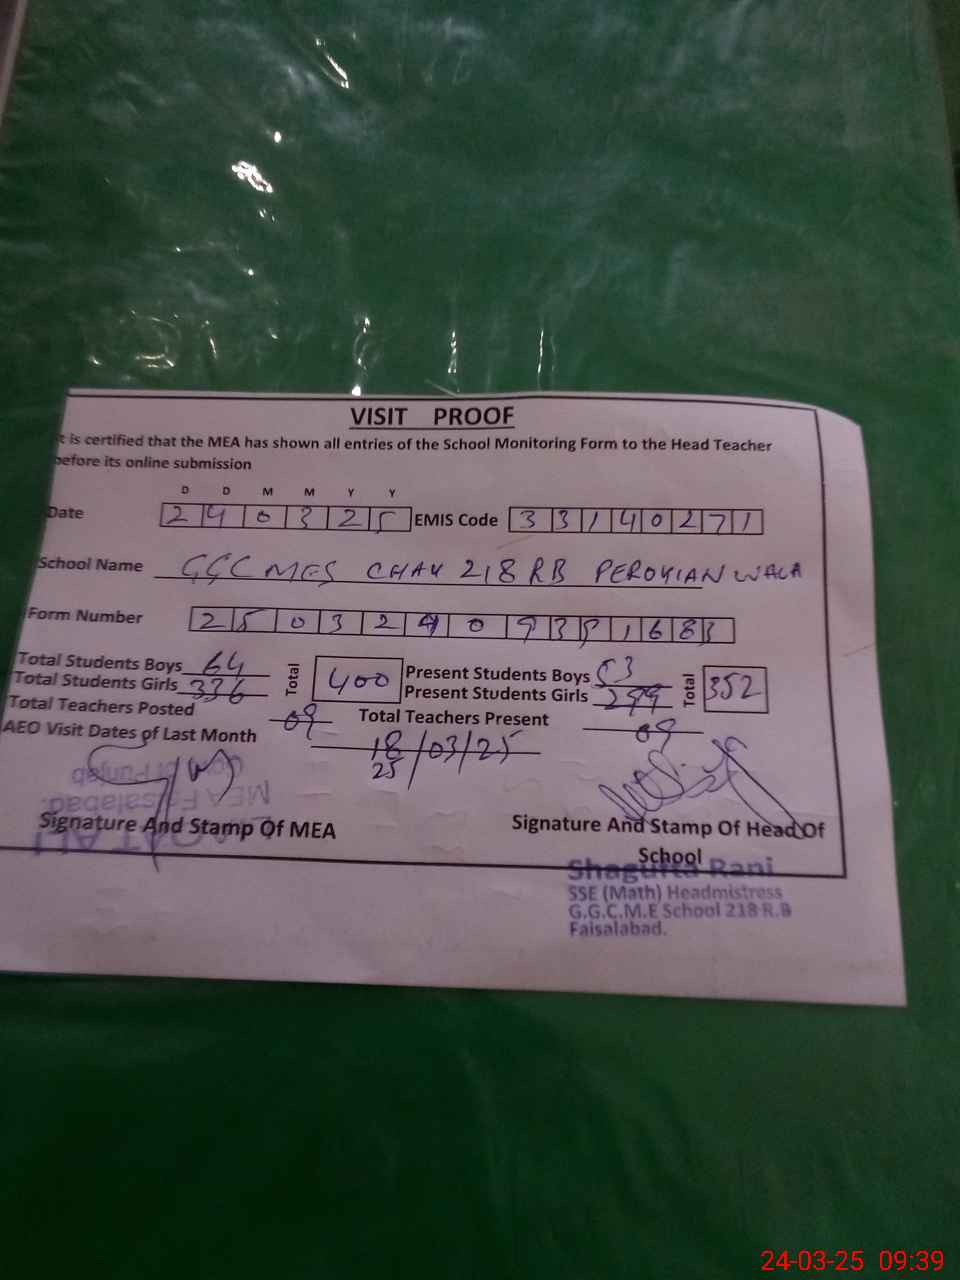 VISIT PROOF
t is certified that the MEA has shown all entries of the School Monitoring Form to the Head Teacher
before its online submission
D D M M Y Y
Date 2 4 0 3 2 5 EMIS Code 3 3 1 4 0 2 7 1
School Name GGCMES CHAK 218 RB PEROKIANWALA
Form Number 2 5 0 3 2 4 0 9 3 5 1 6 8 3
Total Students Boys 64 Total 400 Present Students Boys 53 Total 352
Total Students Girls 336 Present Students Girls 299
Total Teachers Posted 09 Total Teachers Present 09
AEO Visit Dates of Last Month 18/03/25
25
Govt of Punjab
MEA Faisalabad.
LIAQAT ALI
Signature And Stamp Of MEA
Signature And Stamp Of Head Of
School
Shagufta Rani
SSE (Math) Headmistress
G.G.C.M.E School 218 R.B
Faisalabad.
24-03-25 09:39